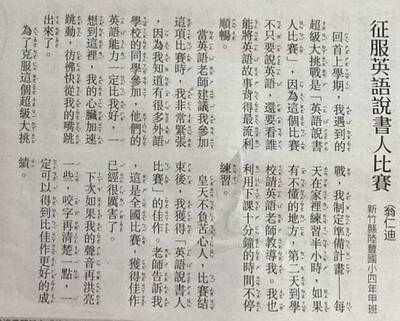 征服英語說書人比賽
翁仁迪
新竹縣陸豐國小四年甲班
回首上學期，我遇到的
超級大挑戰是「英語說書
人比賽」，因為這個比賽
不只要說英語，還要看誰
能將英語故事背得最流利
順暢。
當英語老師建議我參加
這項比賽時，我非常緊張
，因為我知道有很多外語
學校的同學參加，他們的
英語能力一定比我好，一
想到這裡，我的心臟加速
跳動，彷彿快從我的嘴跳
出來了。
為了克服這個超級大挑
戰，我制定準備計畫——每
天在家裡練習半小時，如果
有不懂的地方，第二天到學
校請英語老師教導我。我也
利用下課十分鐘的時間不停
練習。
皇天不負苦心人，比賽結
束後，我獲得「英語說書人
比賽」的佳作。老師告訴我
，這是全國比賽，獲得佳作
已經很厲害了。
下次如果我的聲音再洪亮
一些，咬字再清楚一點，一
定可以得到比佳作更好的成
績。